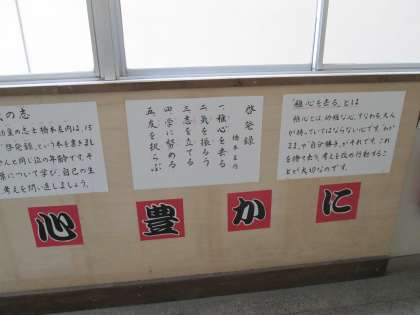 の志
の志士 橋本左内は、15
「啓発録」という本を書きまし
さんと同じ位の年齢です。そ
について学び、自己の生
考えを問い返しましょう。
啓発録
橋本左内
一稚心を去る
二気を振るう
三志を立てる
四学に努める
五友を択らぶ
「稚心を去る」とは
稚心とは、幼稚な心、すなわち、大人
が持っていてはならない心です。「わが
まま」や「自分勝手」がそれです。これ
を捨て去り、考えを改め行動するこ
とが大切なのです。
心豊かに